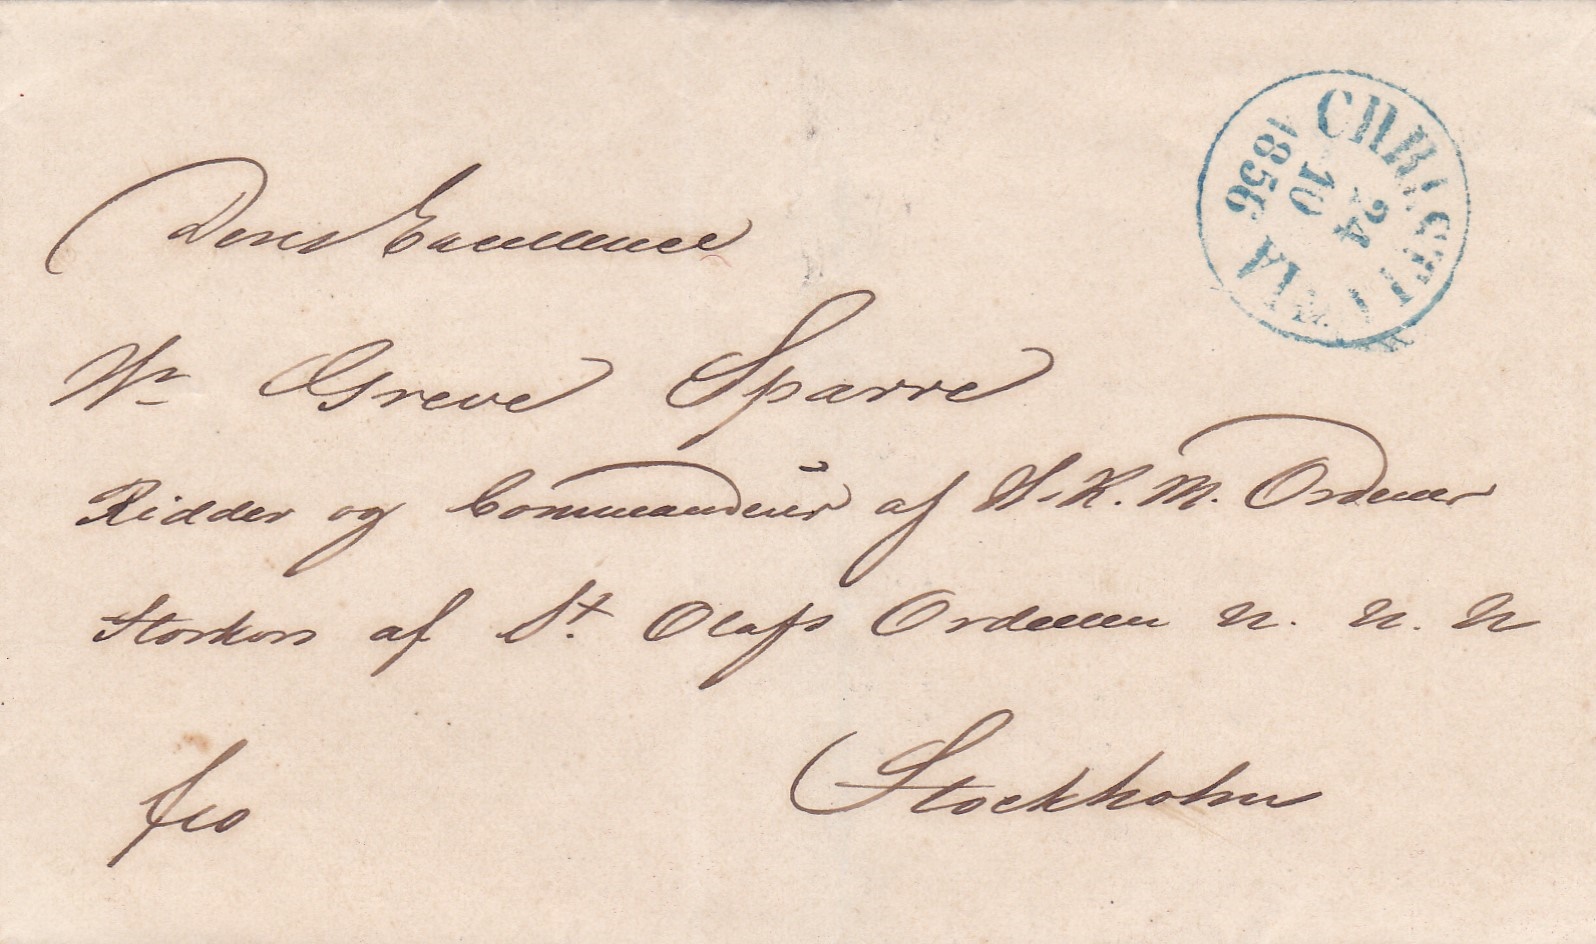 CHRISTIANIA
24
10
1856
Deres Excellence
Hr Greve Sparre
Ridder og Commandeur af H. K. M. Ordener
Storkors af St. Olafs Ordenen n. n. n
fco
Stockholm